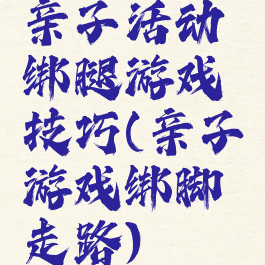 亲子活动
绑腿游戏
技巧(亲子
游戏绑脚
走路)